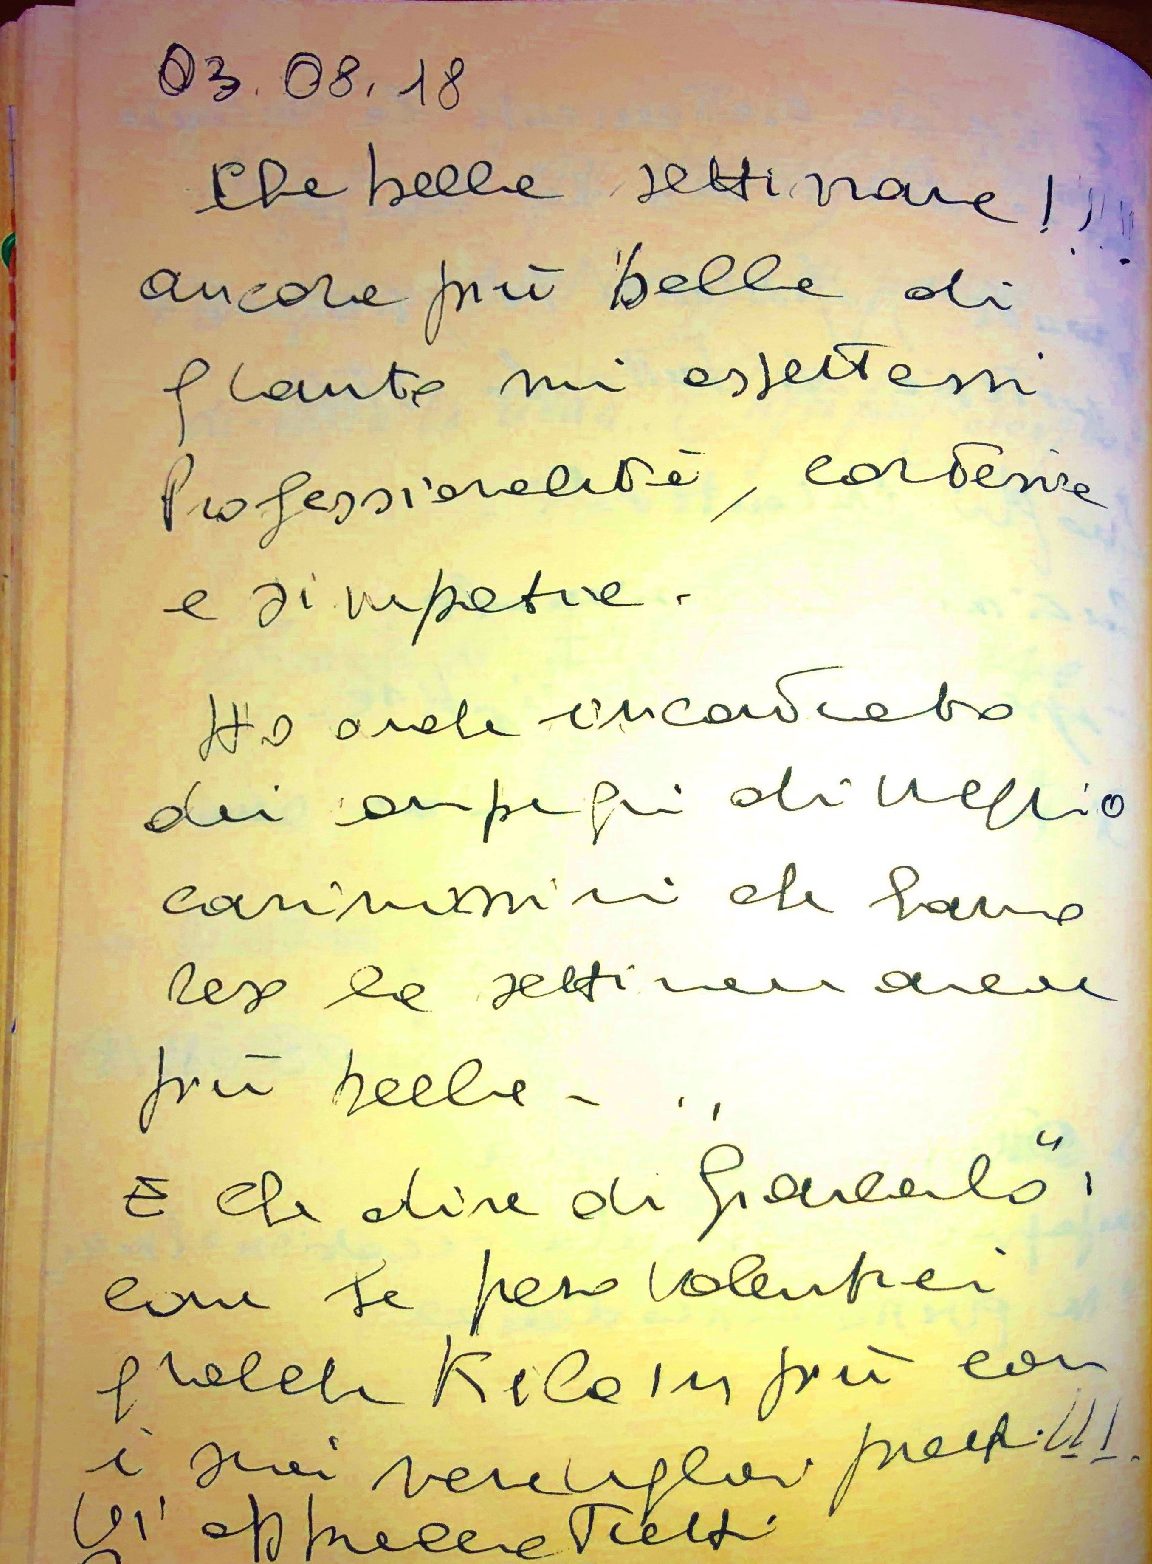 03.08.18
Che bella settimana!!!!
ancora più bella di
quanto mi aspettassi
Professionalità, cortesia
e simpatia.
Ho anche incontrato
dei compagni di viaggio
carinissimi che hanno
reso la settimana ancora
più bella.
E che dire di "Giancarlo",
come se
volentieri
qualche Kilo in più con
i suoi meravigliosi piatti!!!